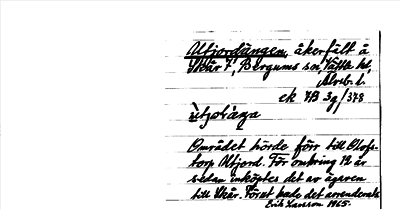 Utjordängen, åkerfält å
Skår 7, Bergums sn, Vättle hd,
Älvsb. l.
ek 7B 3g/378
Området hörde förr till Olofs-
torp Utjord. För omkring 12 år
sedan inköptes det av ägaren
till Skår. Först hade det arrenderats
Erik Larsson 1965.